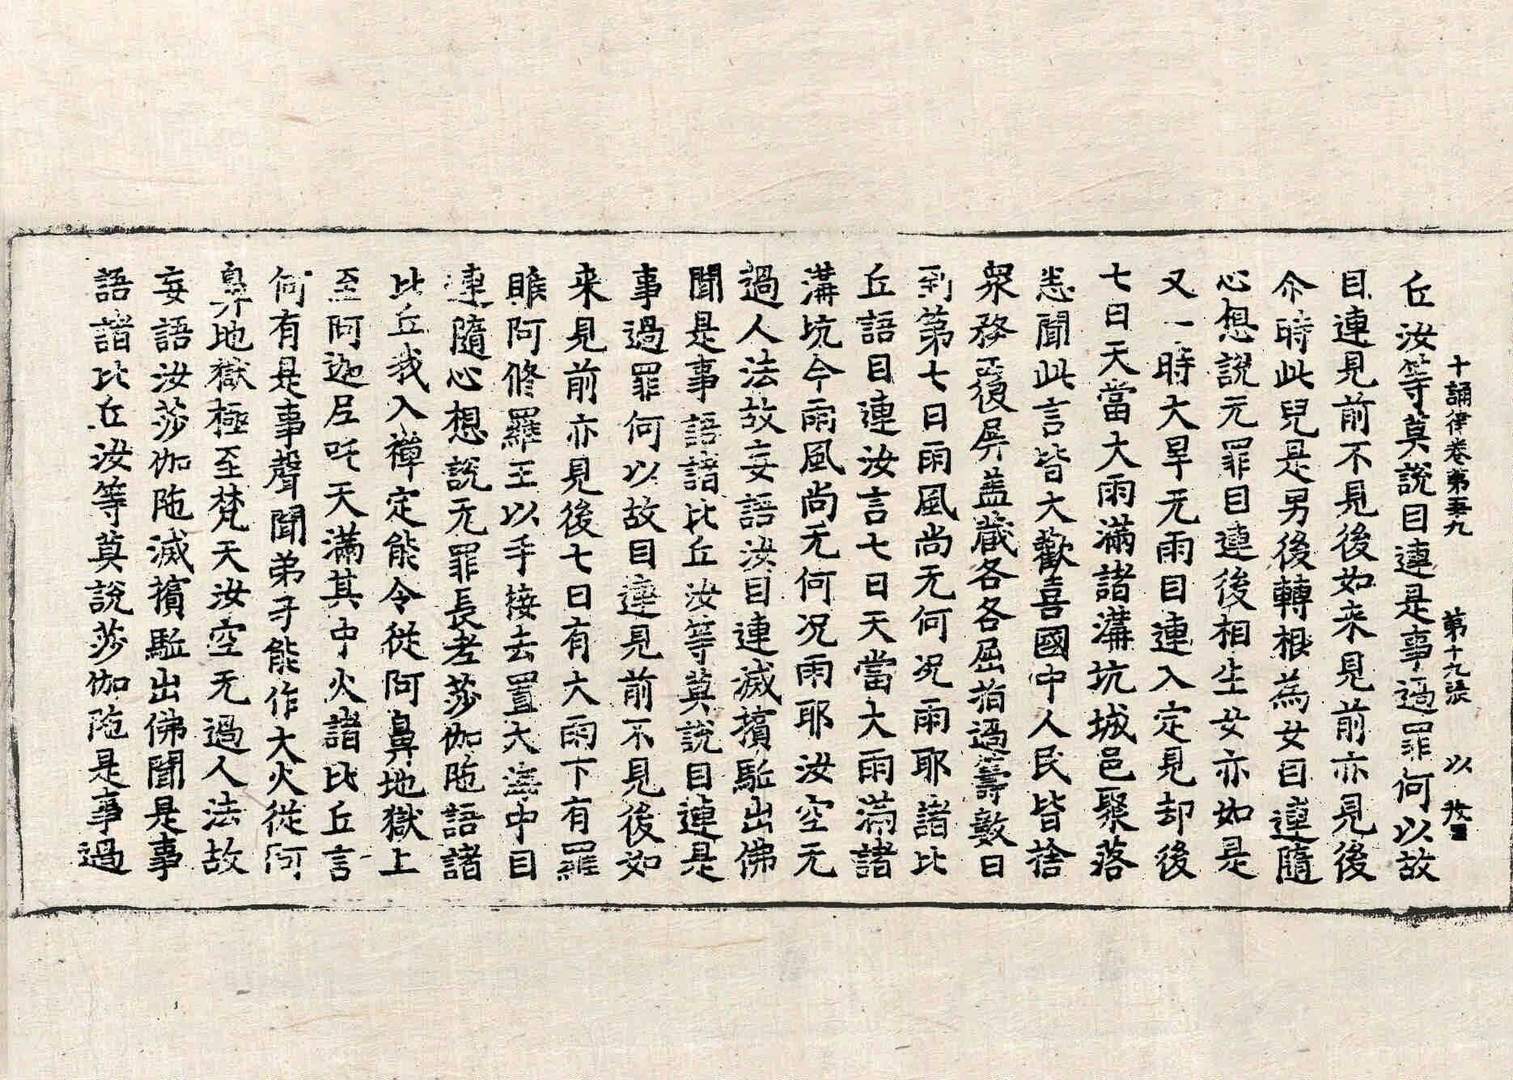 十誦律卷第五九 第十九張 以
丘汝等莫說目連是事過罪何以故
目連見前不見後如来見前亦見後
尒時此兒是男後轉根為女目連隨
心想說无罪目連後相生女亦如是
又一時大旱无雨目連入定見却後
七日天當大雨滿諸溝坑城邑聚落
悉聞此言皆大歡喜國中人民皆捨
衆務覆屏盖藏各各屈指過筭數日
到第七日雨風尚无何况雨耶諸比
丘語目連汝言七日天當大雨滿諸
溝坑今雨風尚无何况雨耶汝空无
過人法故妄語汝目連滅擯駈出佛
聞是事語諸比丘汝等莫說目連是
事過罪何以故目連見前不見後如
来見前亦見後七日有大雨下有羅
睺阿修羅王以手接去置大海中目
連隨心想說无罪長老莎伽陁語諸
比丘我入禪定能令従阿鼻地獄上
至阿迦尼吒天滿其中火諸比丘言
何有是事聲聞弟子能作大火従阿
鼻地獄極至梵天汝空无過人法故
妄語汝莎伽陁滅擯駈出佛聞是事
語諸比丘汝等莫說莎伽陁是事過